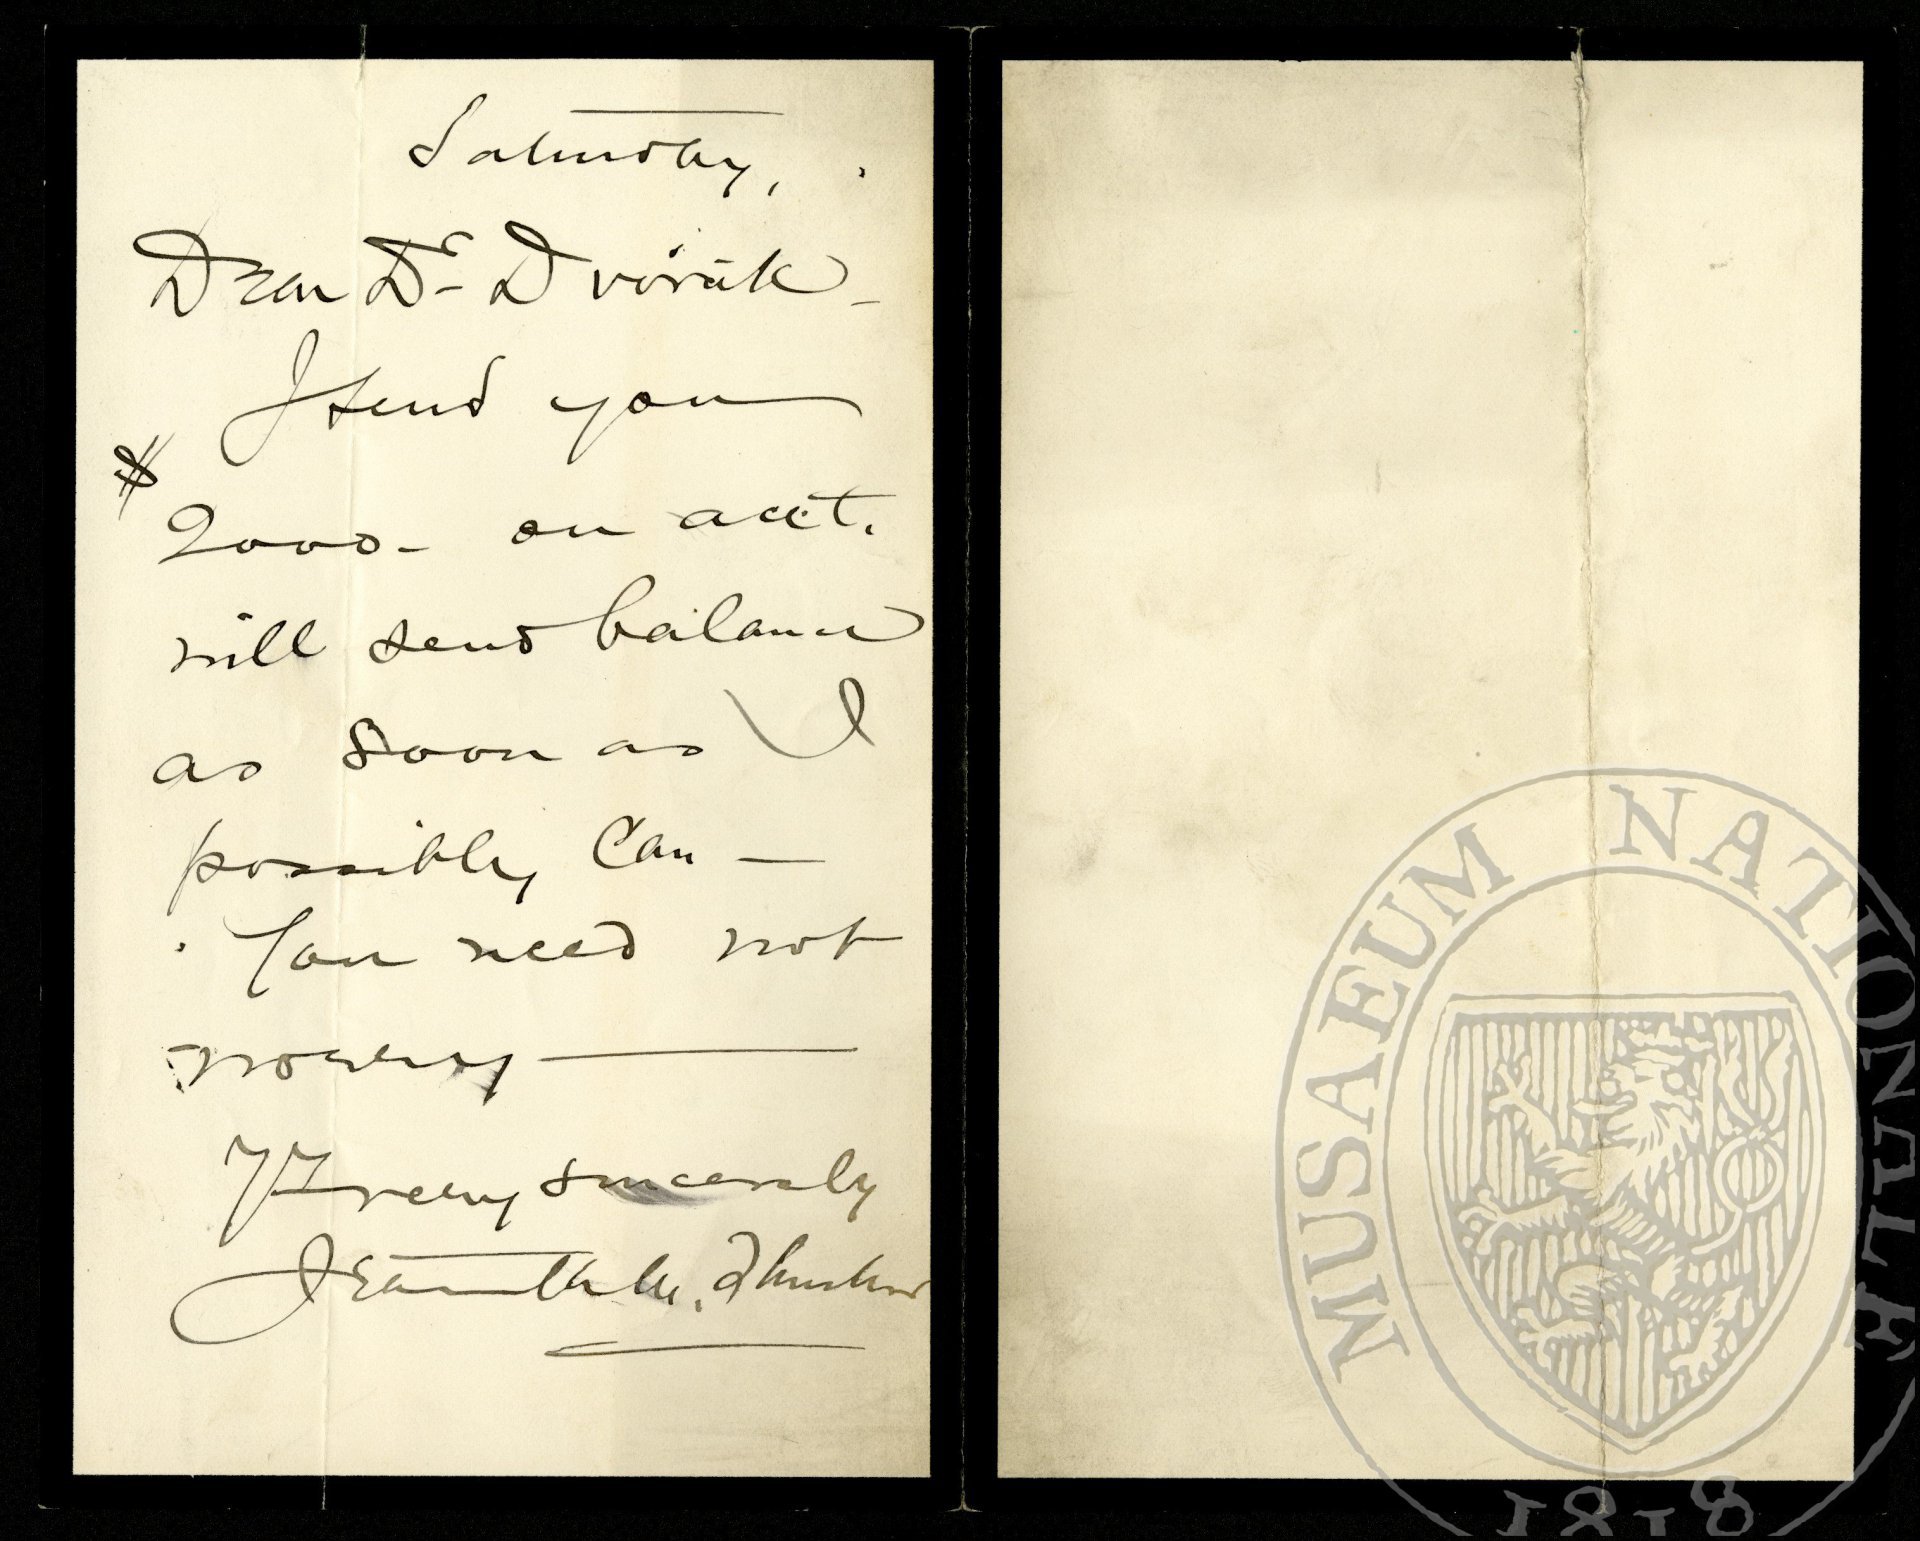 Saturday,
Dear Dr Dvořák –
I send you
$
2000– on acct.
will send balance
as soon as I
possibly can –
You need not
worry –
very sincerely
Jeannette M. Thurber
MUSAEUM NATIONALE
1818